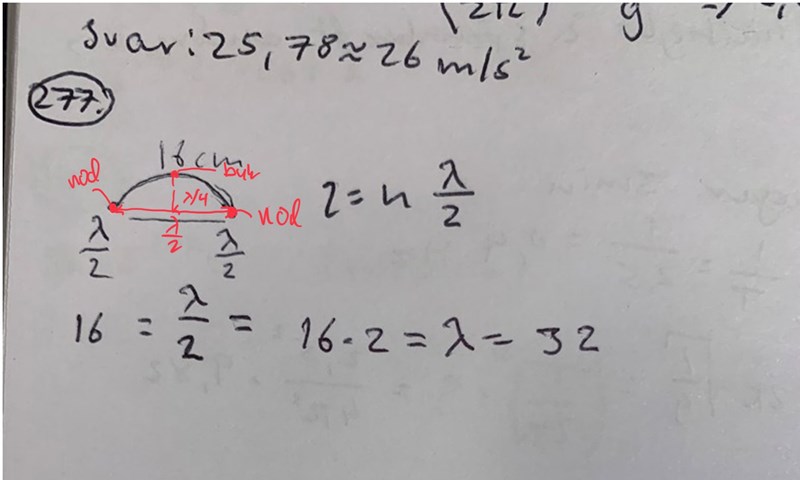 (2π) g
Svar: 25,78≈26 m/s²
277.
16 cm
nod buk
λ/4
nod
λ/2 λ/2 λ/2
2 = n λ/2
16 = λ/2 = 16·2 = λ = 32